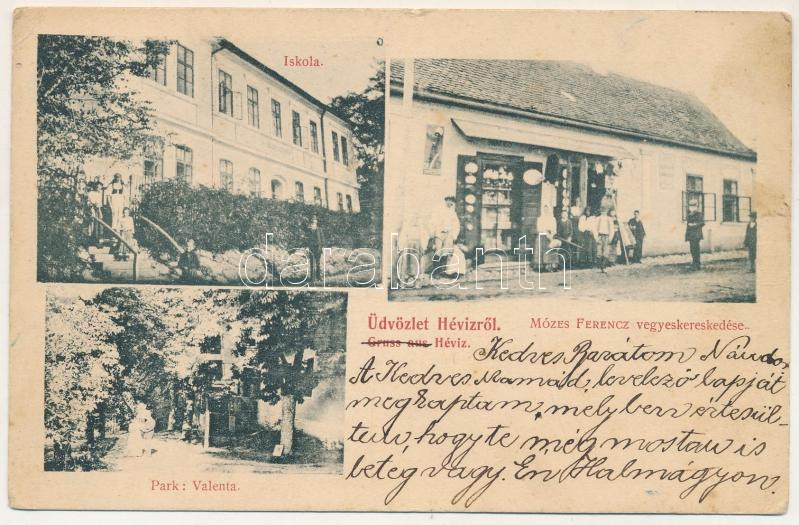 Iskola.
Üdvözlet Hévizről.
Gruss aus Héviz.
MÓZES FERENCZ vegyeskereskedése..
Park : Valenta.
Kedves Barátom Nándor
A Kedves Mamád, levelező lapját
megkaptam, melyben értesül-
tem, hogy te még mostan is
beteg vagy. Én Halmágyon.
darabanth